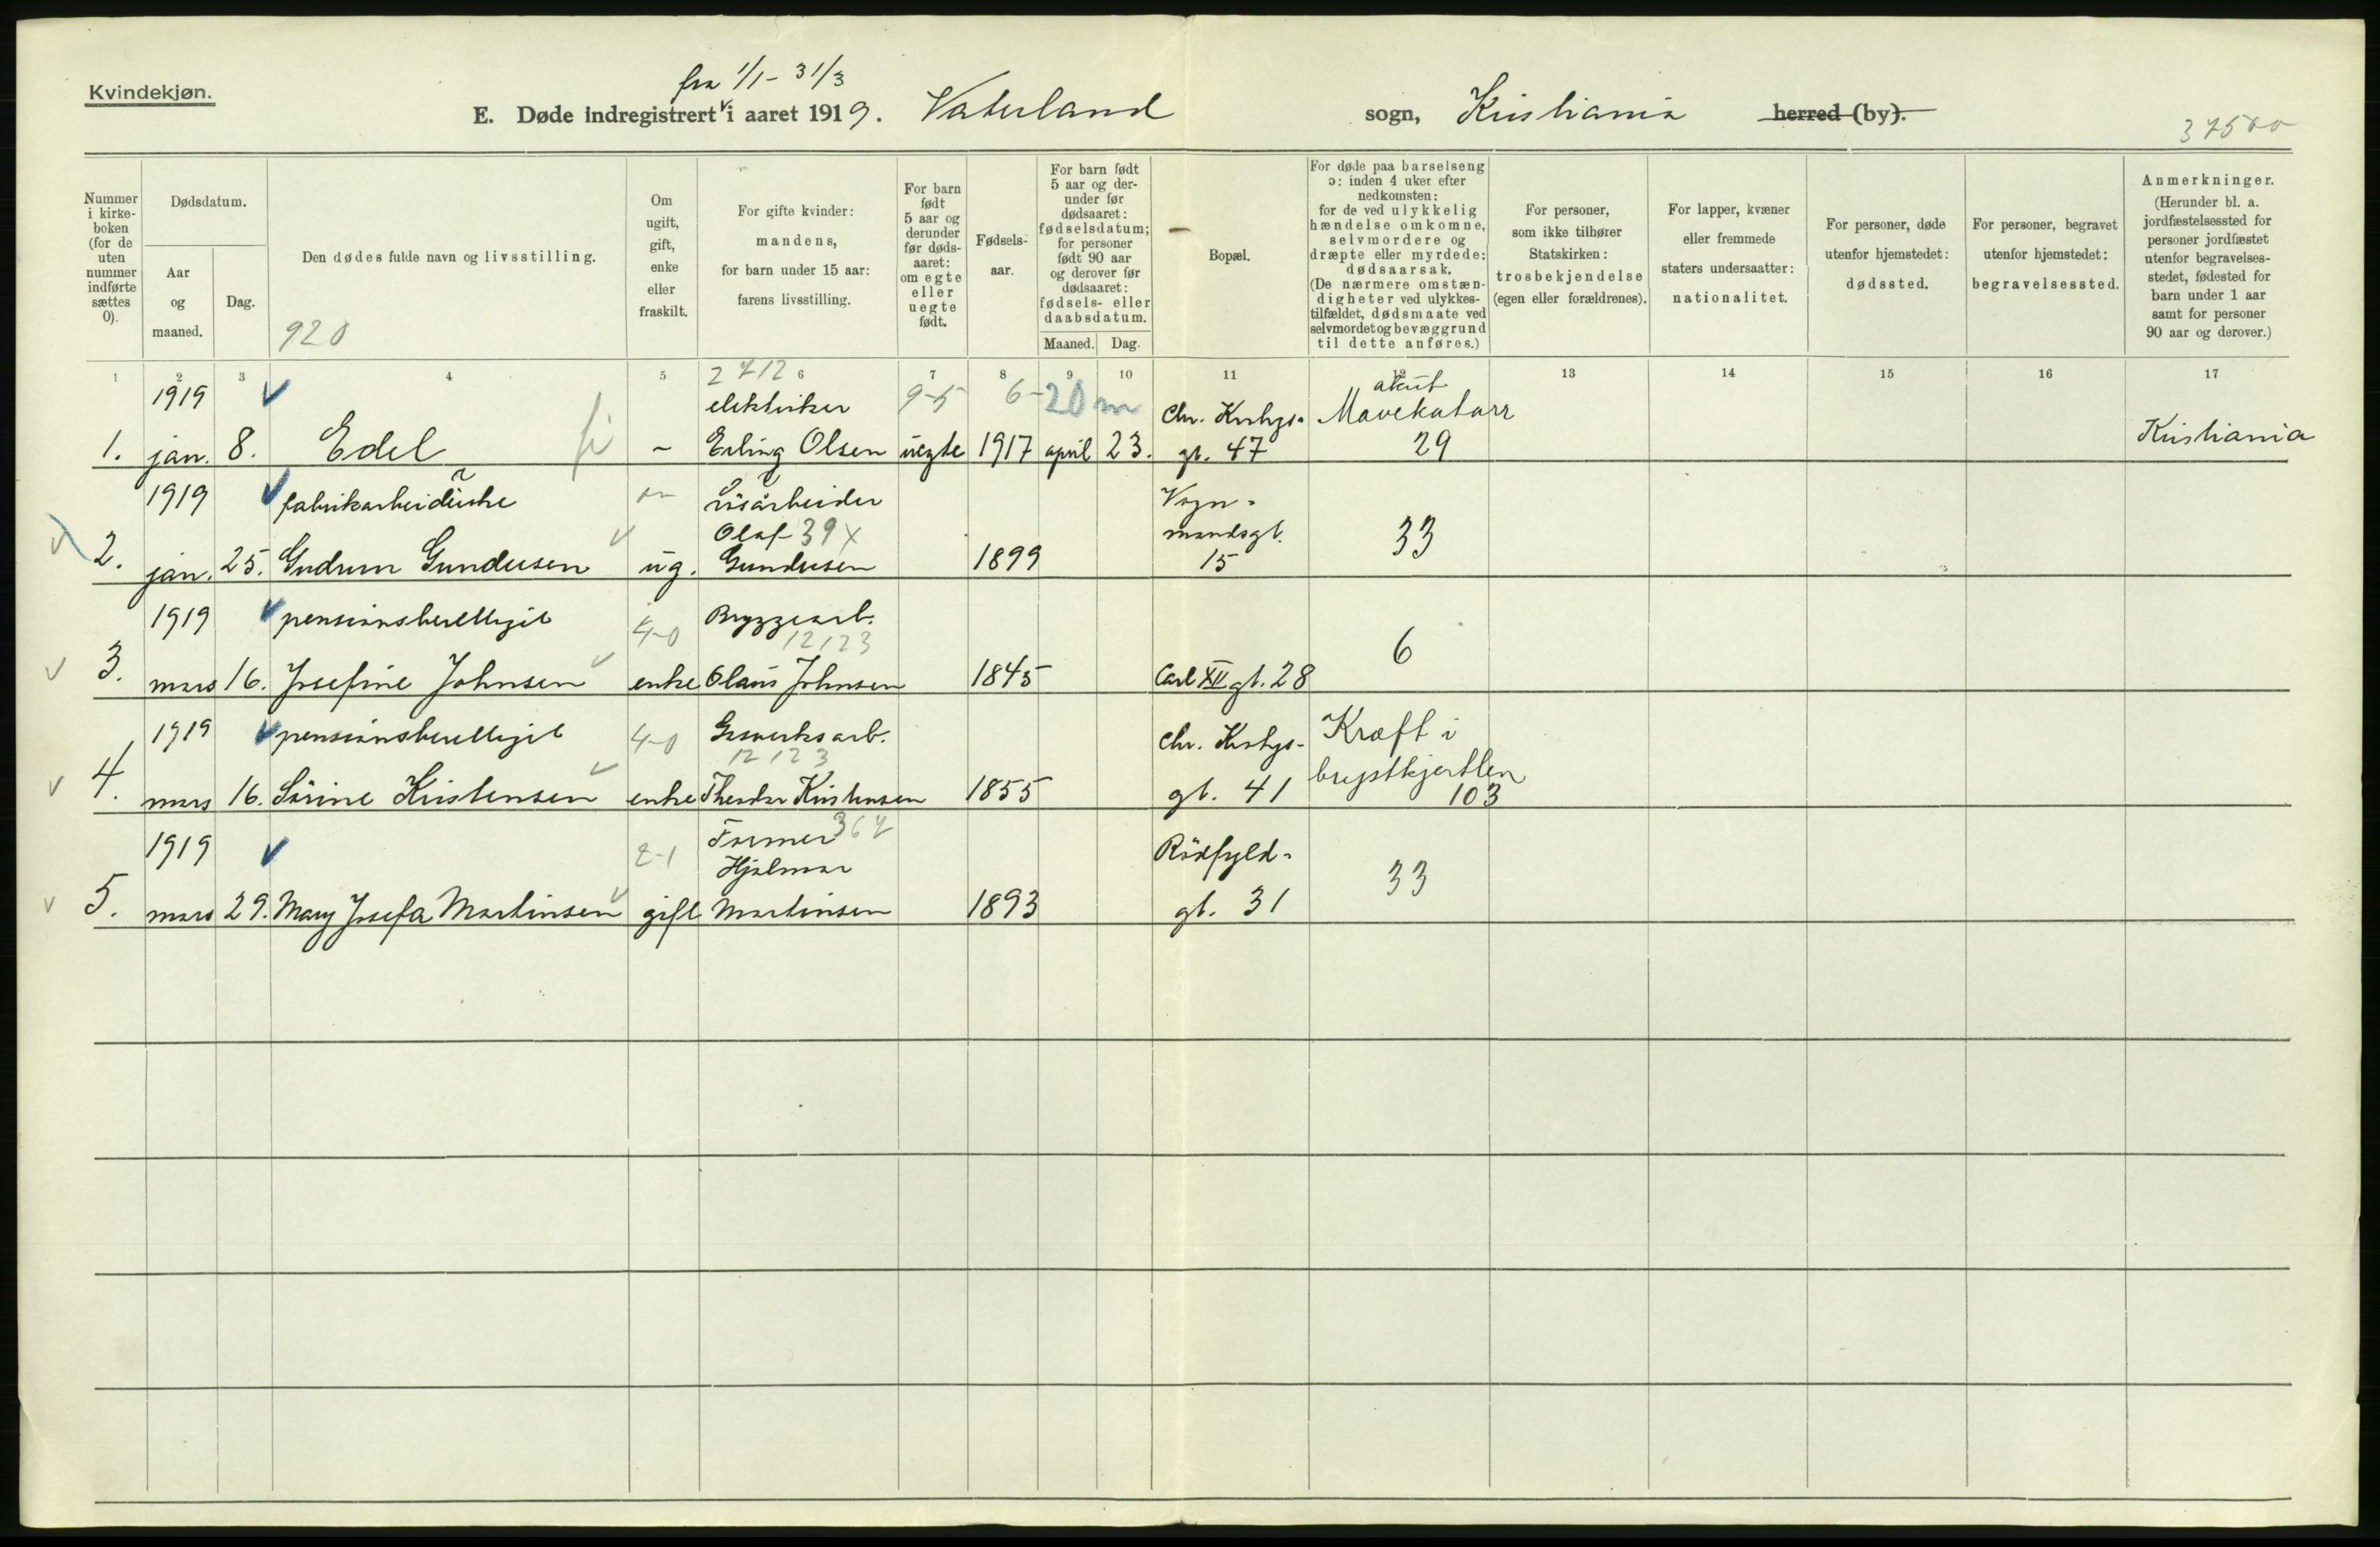 Kvindekjøn.
fra 1/1 - 31/3
E. Døde indregistrert i aaret 1919. Vaterland sogn, Kristiania herred (by).
37500
Nummer i kirke-boken (for de uten nummer indførte sættes 0).
Dødsdatum.
Aar og maaned.
Dag.
Den dødes fulde navn og livsstilling.
920
Om ugift, gift, enke eller fraskilt.
For gifte kvinder: mandens, for barn under 15 aar: farens livsstilling.
For barn født 5 aar og derunder før døds-aaret: om egte eller uegte født.
Fødsels-aar.
For barn født 5 aar og der-under før dødsaaret: fødselsdatum; for personer født 90 aar og derover før dødsaaret: fødsels- eller daabsdatum.
Maaned.
Dag.
Bopæl.
For døde paa barselseng ɔ: inden 4 uker efter nedkomsten: for de ved ulykkelig hændelse omkomne, selvmordere og dræpte eller myrdede: dødsaarsak. (De nærmere omstæn-digheter ved ulykkes-tilfældet, dødsmaate ved selvmordet og bevæggrund til dette anføres.)
For personer, som ikke tilhører Statskirken: trosbekjendelse (egen eller forældrenes).
For lapper, kvæner eller fremmede staters undersaatter: nationalitet.
For personer, døde utenfor hjemstedet: dødssted.
For personer, begravet utenfor hjemstedet: begravelsessted.
Anmerkninger. (Herunder bl. a. jordfæstelsessted for personer jordfæstet utenfor begravelses-stedet, fødested for barn under 1 aar samt for personer 90 aar og derover.)
1 2 3 4 5 6 7 8 9 10 11 12 13 14 15 16 17
2712
1919 elektriker 9-5 6- 20 m Chr. Krohgs- akut Mavekatarr
1. jan. 8. Edel - Erling Olsen uegte 1917 april 23. gt. 47 29 Kristiania
1919 fabrikarbeiderske løsarbeider Vogn-
Olaf 39x mandsgt. 33
2. jan. 25. Gudrun Gundersen ug. Gundersen 1899 15
1919 pensionsberettiget 4-0 Bryggearb.
12123 6
3. mars 16. Josefine Johnsen enke Olaus Johnsen 1845 Carl XII gt. 28
1919 pensionsberettiget 4-0 Gasverksarb. Chr. Krohgs- Kræft i
12123 brystkjertlen
4. mars 16. Sørine Kristensen enke Theodor Kristensen 1855 gt. 41 103
1919 2-1 Former 367 Rødfyld-
Hjalmar 33
5. mars 29. Mary Josefa Martinsen gift Martinsen 1893 gt. 31